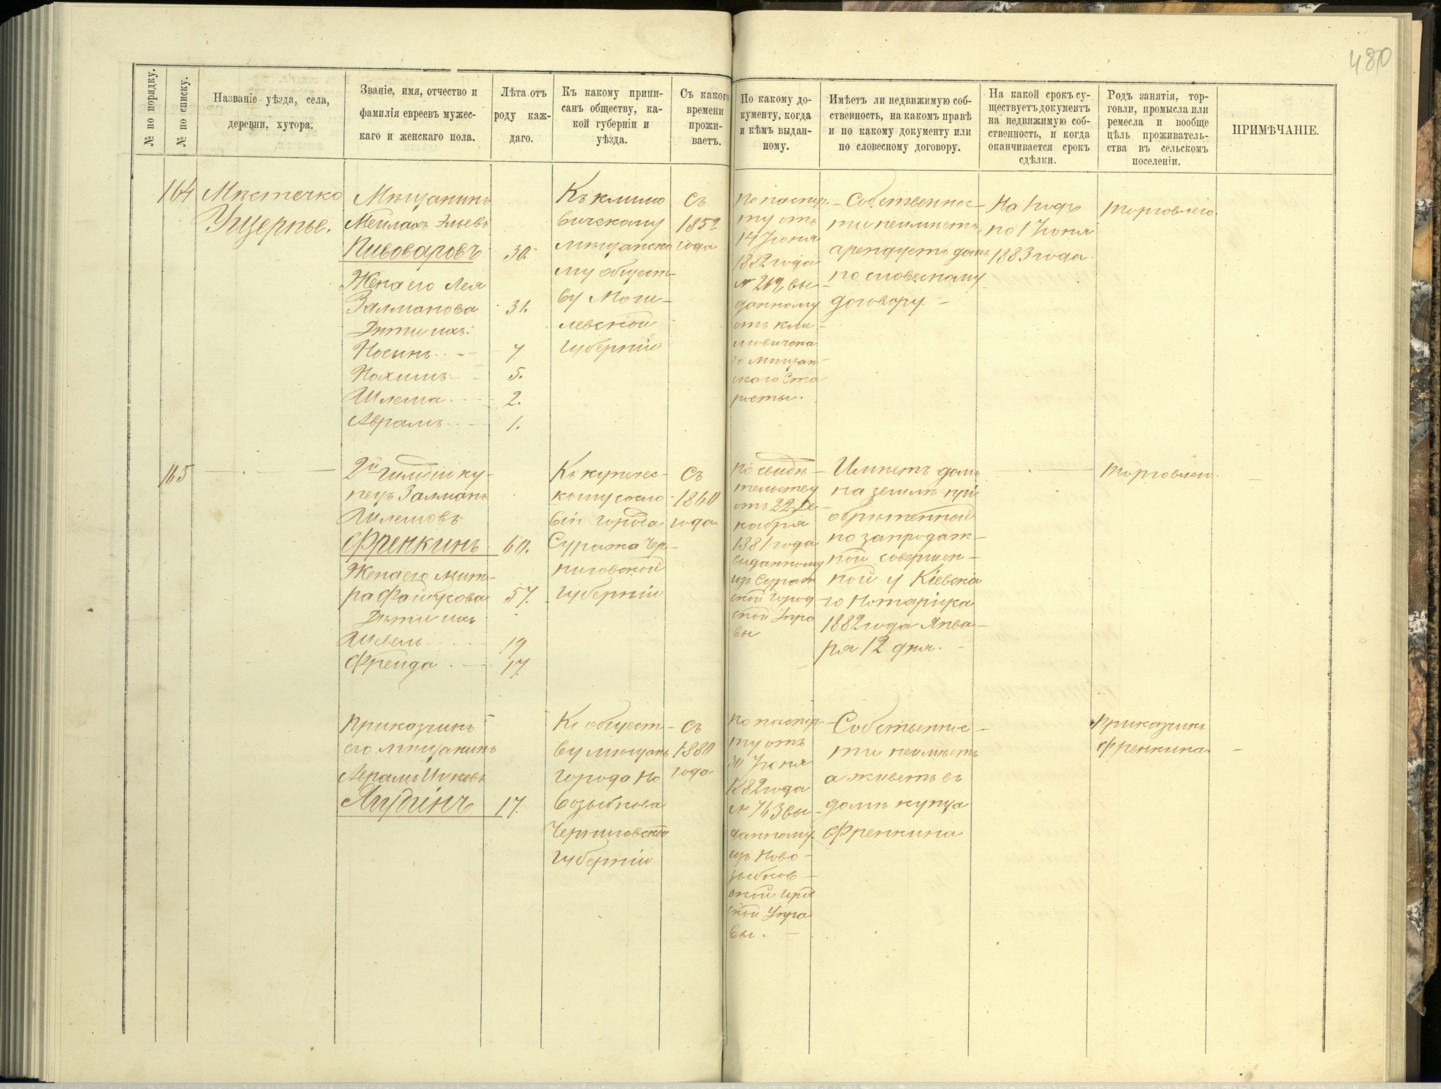 480
№ по порядку.
№ по списку.
Названіе уѣзда, села,
деревни, хутора.
Званіе, имя, отчество и
фамилія евреевъ мужес-
каго и женскаго пола.
Лѣта отъ
роду каж-
даго.
Къ какому припи-
санъ обществу, ка-
кой губерніи и
уѣзда.
Съ какого
времени
прожи-
ваетъ.
По какому до-
кументу, когда
и кѣмъ выдан-
ному.
Имѣетъ ли недвижимую соб-
ственность, на какомъ правѣ
и по какому документу или
по словесному договору.
На какой срокъ су-
ществуетъ документъ
на недвижимую соб-
ственность, и когда
оканчивается срокъ
сдѣлки.
Родъ занятія, тор-
говли, промысла или
ремесла и вообще
цѣль проживатель-
ства въ сельском
поселеніи.
ПРИМѢЧАНІЕ.
164
Мѣстечко
Ущерпье.
Мѣщанинъ
Мейлахъ
Пивоваровъ
30.
Жена его Лея
Залманова
31.
Дѣти ихъ:
Носинъ 7
Нохимъ 5.
Шлема 2.
Аврамъ 1.
Къ климо
вичскому
мѣщанско
му общест-
ву Моги-
левской
губерніи
съ
1852
года
По паспор-
ту отъ
14 Іюня
1882 года
№ 269, вы-
данному
отъ кли-
мовичска
го мѣщан-
скаго Ста
росты.
Собственнос-
ти неимѣетъ
арендуетъ домъ
по словесному
договору.
На годъ
по 1 Іюня
1883 года
торговлею.
165
2й гильдіи ку-
пецъ Залманъ
Шлемовъ
Френкинъ 60.
Жена его
57.
Дѣти ихъ
19
Фрейда 17.
Къ купечес-
кому сосло-
вію города
Суража Чер-
ниговской
губерніи
съ
1860
года
По свидѣ-
тельству
отъ 22 Де-
кабря
1881 года
выданному
изъ Сураж
ской Город
ской Упра
вы
Имѣетъ домъ
на землѣ прі-
обрѣтенной
по запродаж-
ной совершен-
ной у Кіевска
го Нотаріуса
1882 года Янва-
ря 12 дня.
торговлею.
Приказчикъ
его мѣщанинъ
Лудинъ 17.
Къ общест-
ву мѣщанъ
города Но
возыбкова
Черниговской
губерніи
съ
1880
года
По паспор-
ту отъ
30 Іюня
1882 года
№ 763 вы-
данному
изъ Ново-
зыбков-
ской Город
ской Упра
вы.
Собственнос-
ти неимѣетъ
а живетъ въ
домѣ купца
Френкина
Приказчикъ
Френкина